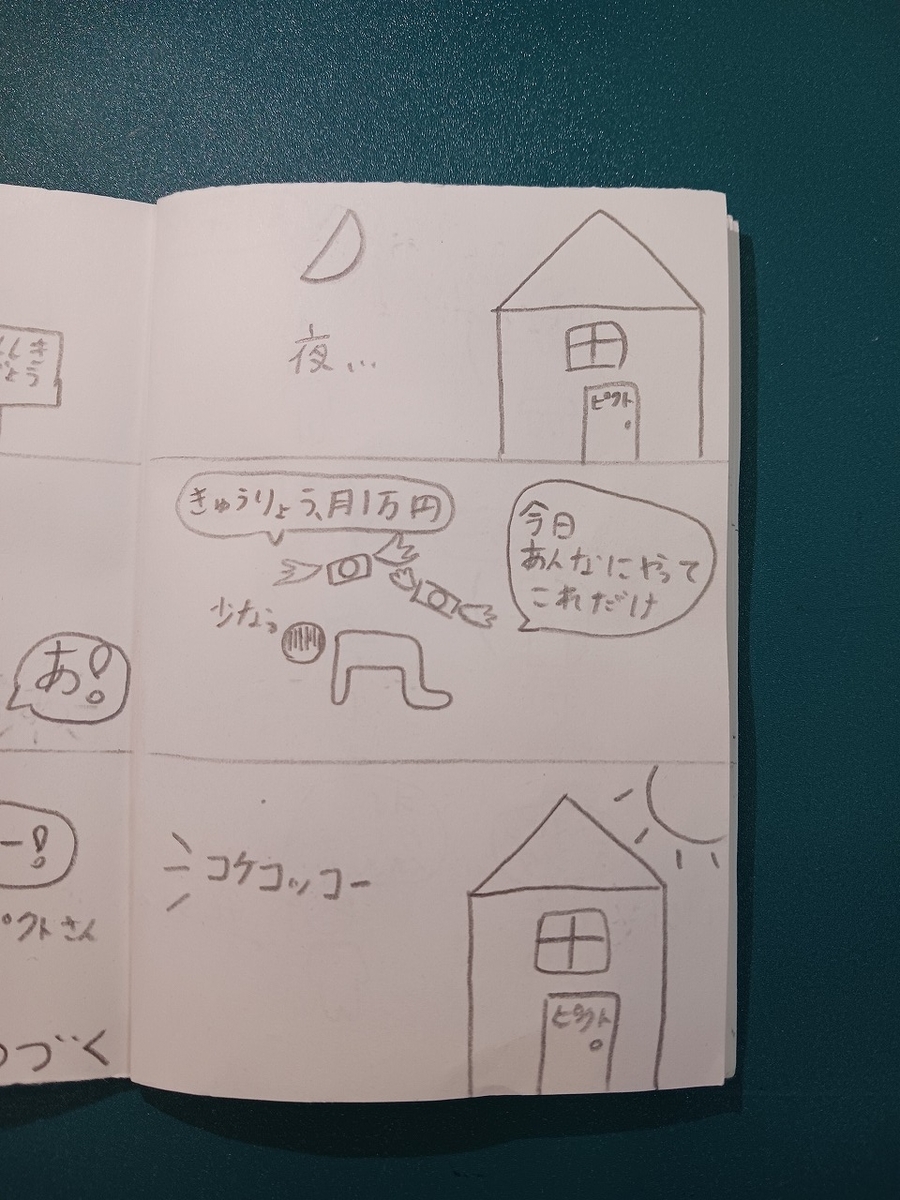 夜…
ピクト
きゅうりょう、月1万円
今日
あんなにやって
これだけ
少なっ
コケコッコー
ピクト
あ!
クトさん
づく